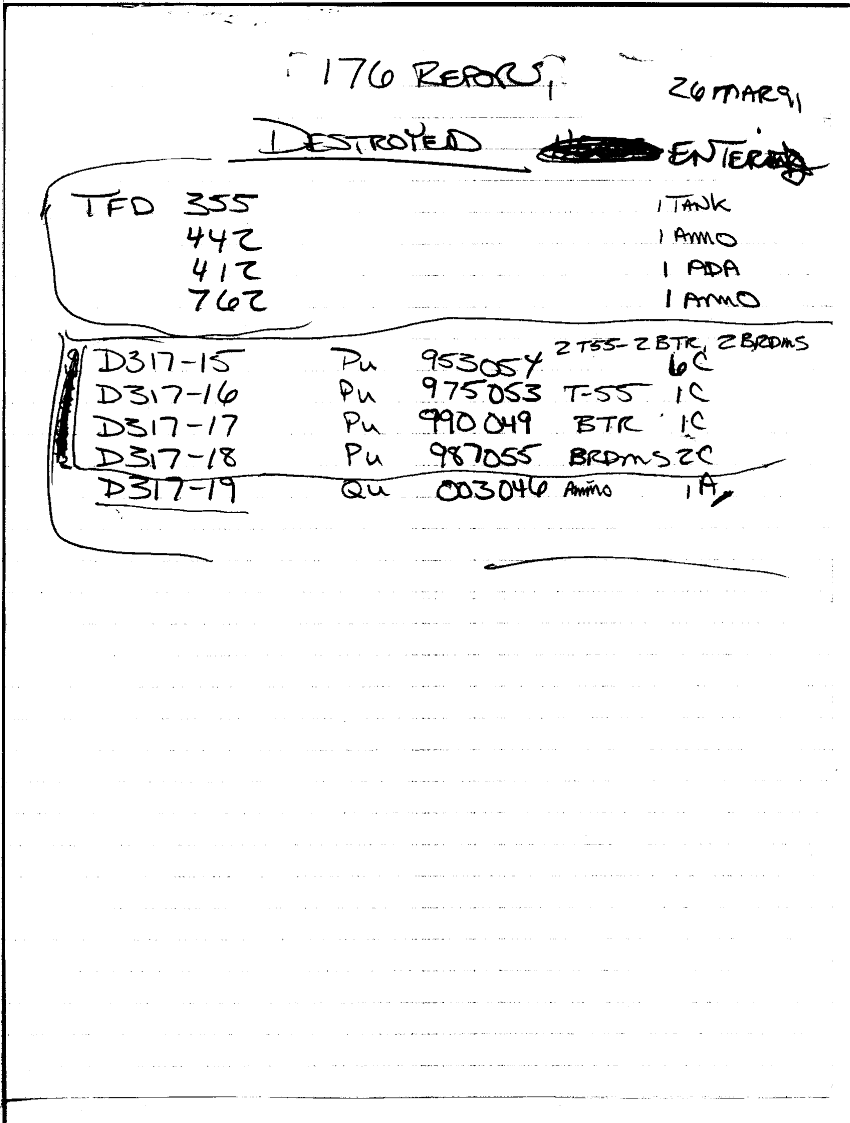 176 REPORT
26 MAR 91
DESTROYED ENTERED
TFD 355 1 TANK
442 1 AMMO
412 1 ADA
762 1 AMMO
2 T55 - 2 BTR, 2 BRDMS
D317-15 Pu 953054 6C
D317-16 Pu 975053 T-55 1C
D317-17 Pu 990049 BTR 1C
D317-18 Pu 987055 BRDMS 2C
D317-19 Qu 003046 Ammo 1A